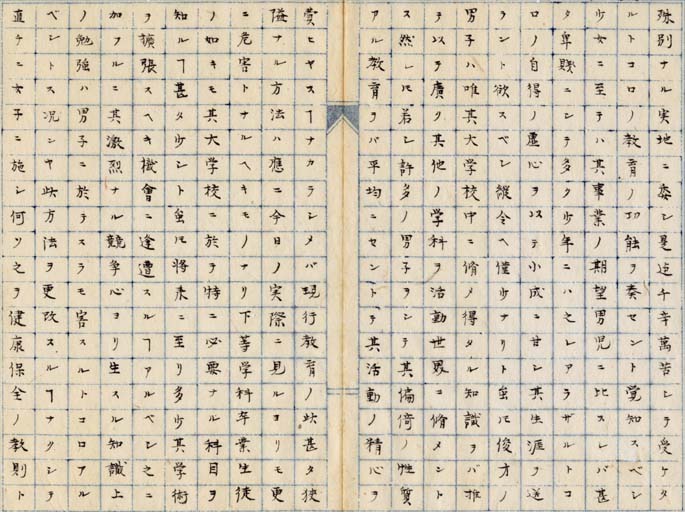 殊別ナル実地ニ委シ是迄千辛萬苦シテ受ケタ
ルトコロノ教育ノ功能ヲ奏セント覚知スベシ
少女ニ至テハ其事業ノ期望男児ニ比スレバ甚
タ卑賤ニシテ多ク少年ニハ之レアラザルトコ
ロノ自得ノ虚心ヲ以テ小成ニ甘シ其生涯ヲ送
ラント欲スベシ縦令ヘ僅少ナリト虽𪜈後方ノ
男子ハ唯其大学校中ニ脩メ得タル知識ヲバ推
テ以ヲ廣ク其他ノ学科ヲ活動世界ニ脩メント
ス然レ𪜈若シ許多ノ男子ヲシテ其偏倚ノ性質
アル教育ヲバ平均ニセントテ其活動ノ精心ヲ
費ヒヤスヿナカラシメバ現行教育ノ此甚タ狭
隘ナル方法ハ應ニ今日ノ実際ニ見ルヨリモ更
ニ危害トナルヘキモノナリ下等学科卒業生徒
ノ如キモ其大学校ニ於テ特ニ必要ナル科目ヲ
知ルヿ甚タ少シト虽𪜈将来ニ至リ多少其学術
ヲ擴張スヘキ機會ニ逢遭スルヿアルベシ之ニ
加フルニ其激烈ナル競争心ヨリ生スル知識上
ノ勉強ハ男子ニ於テスラモ害スルトコロアル
ベシトス况ンヤ此方法ヲ更改スルヿナクシテ
直チニ女子ニ施シ何リ之ヲ健康保全ノ教則ト